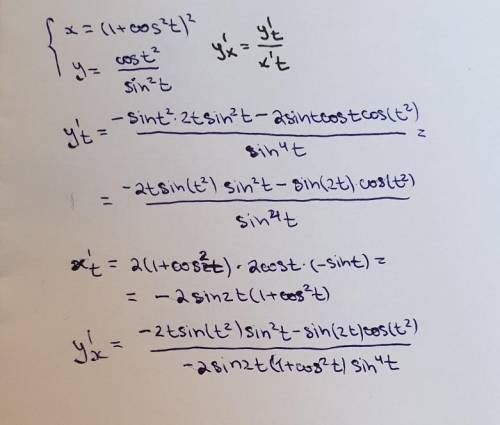 x = (1+cos²t)²
y = cost²/sin²t
y'x = y't/x't
y't = (-sint²·2tsin²t-2sintcostcos(t²))/sin⁴t =
= (-2tsin(t²)sin²t-sin(2t)cos(t²))/sin⁴t
x't = 2(1+cos²t)·2cost·(-sint) =
= -2sin2t(1+cos²t)
y'x = (-2tsin(t²)sin²t-sin(2t)cos(t²))/(-2sin2t(1+cos²t)sin⁴t)